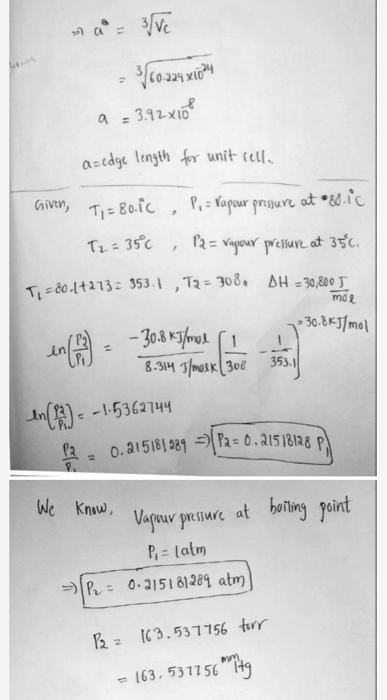 ⇒ a = ∛Vc
= ∛60.229×10²⁴
a = 3.92×10⁻⁸
a=edge length for unit cell.
Given, T₁ = 80.1°C , P₁ = Vapour pressure at 80.1°C
T₂ = 35°C , P₂ = vapour pressure at 35°C.
T₁ = 80.1+273 = 353.1 , T₂ = 308, ΔH = 30,800 J/mole
= 30.8 KJ/mol
ln(P₂/P₁) = -30.8 KJ/mol / 8.314 J/mol K [1/308 - 1/353.1]
ln(P₂/P₁) = -1.5362744
P₂/P₁ = 0.215181289 ⇒ P₂ = 0.21518128 P₁
We know, Vapour pressure at boiling point
P₁ = 1atm
⇒ P₂ = 0.215181289 atm
P₂ = 163.537756 torr
= 163.537756 mm Hg